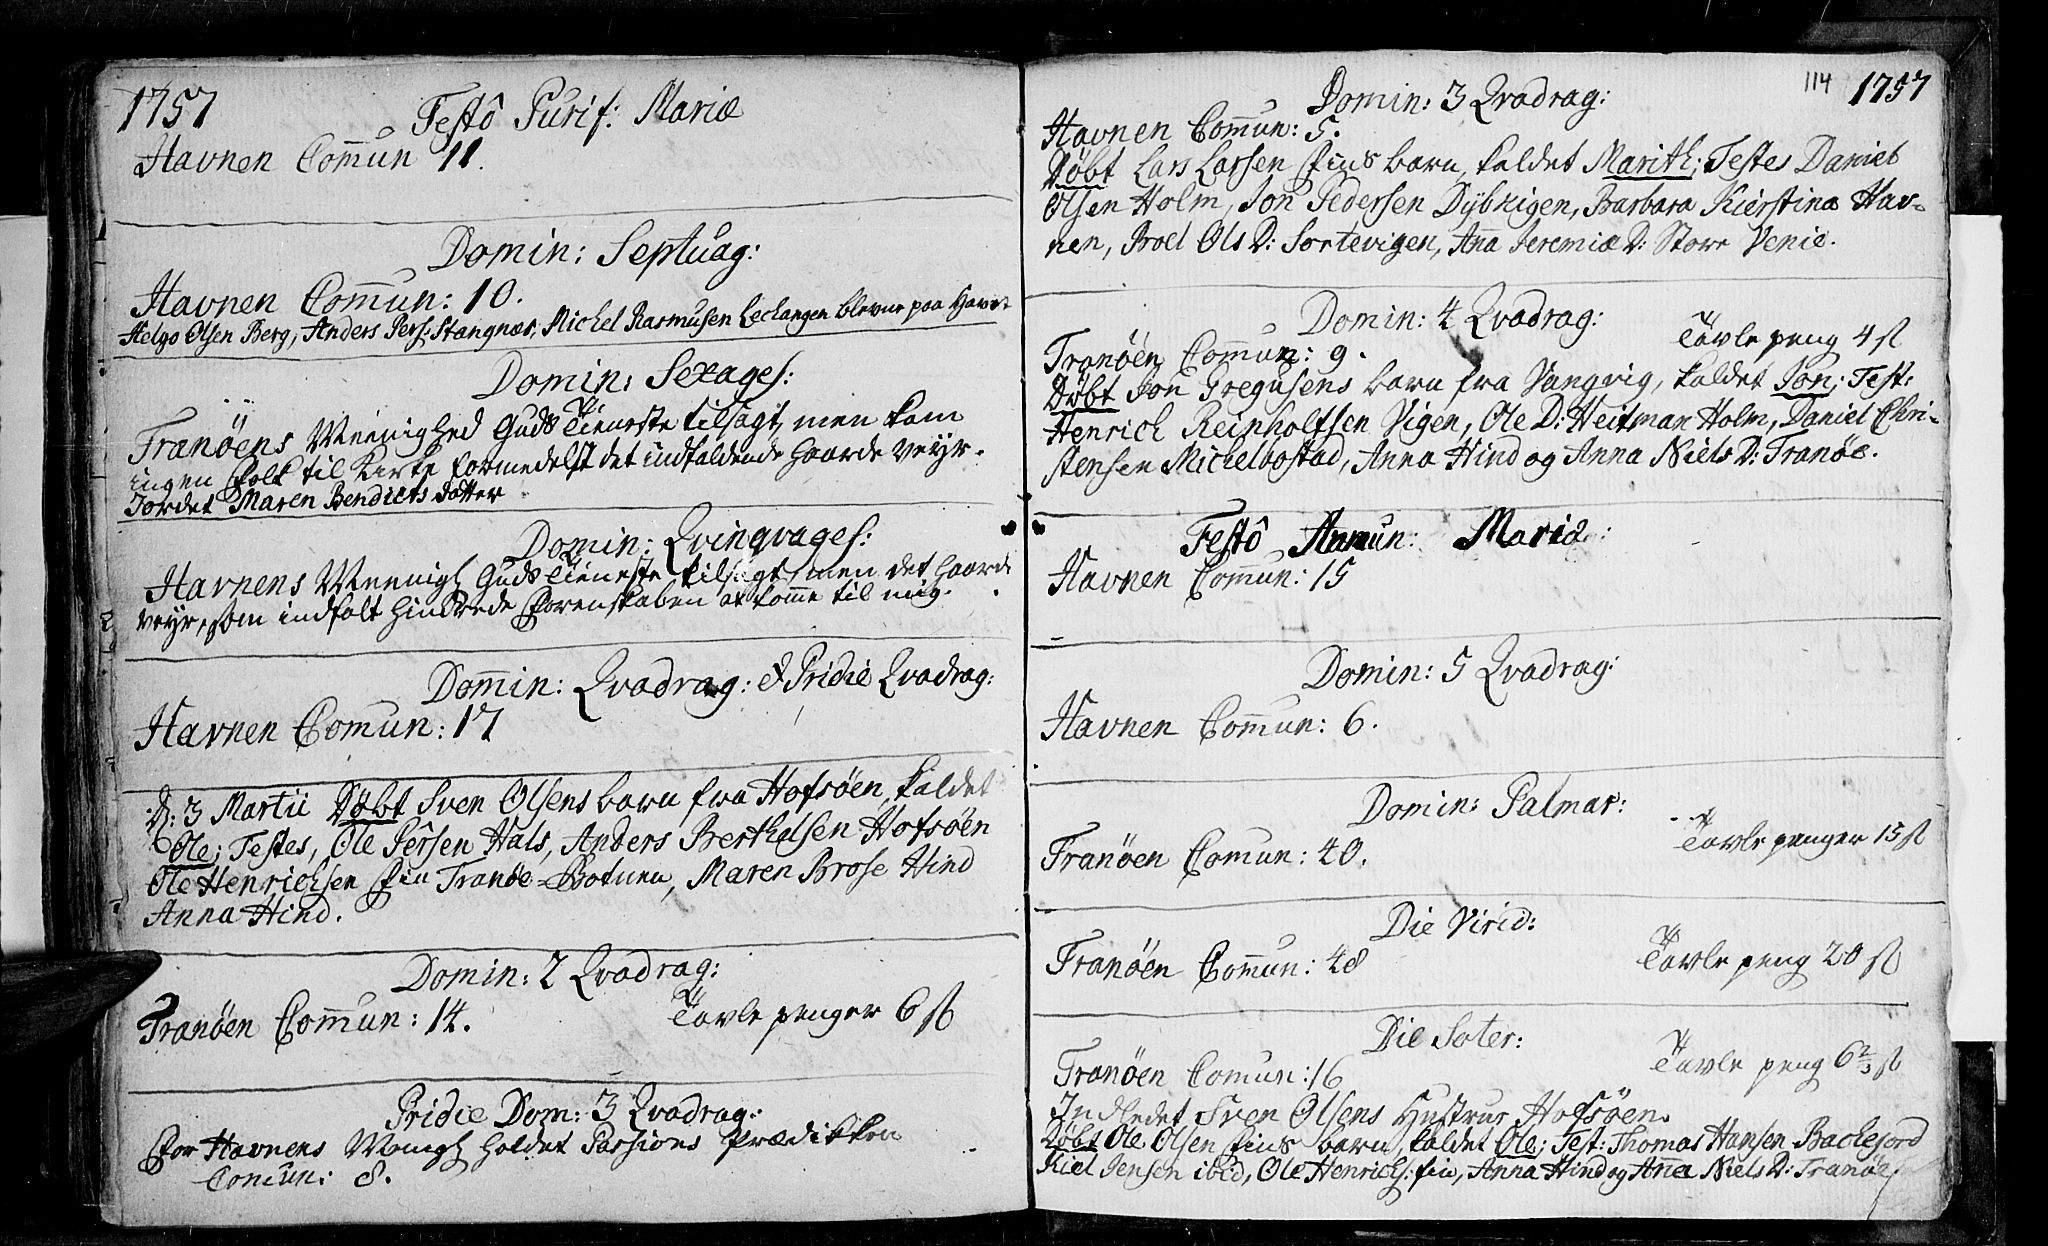 1757
Festô Purif: Mariæ
Havnen Com̄un 11.
Domin: Septuag:
Havnen Com̄un: 10.
Helgo Olsen Berg, Anders Pers: Stangnæs, Michel Rasmusen Leclangen blevne paa Havet
Domin: Sexages:
Tranöens Meenighed Guds Tieneste tilsagt, men kom
ingen Folk til Kirke formedelst det indfaldende haarde Veyr.
Jordet Maren Bendicts datter
Domin: Qvinqvages:
Havnens Meenigh Guds Tieneste tilsagt, men det haarde
veyr, som indfalt hindrede Forenskaben at kom̄e til mig.
Dom̄in: Qvadrag: & Pridie Qvadrag:
Havnen Com̄un: 17
D: 3 Martii Døbt Sven Olsens barn fra Hofsöen, kaldet
Ole; Testes, Ole Pêrsen Hals, Anders Berthelsen Hofsöen
Ole Henrichsen Fin Tranöe-Botnen, Maren Brose Hind
Anna Hind.
Domin: 2 Qvadrag:
Tranöen Com̄un: 14. Tavle penger 6 ß
Pridie Dom: 3 Qvadrag:
For Havnens Menigh holdet Passions Prædikken
Com̄un: 8.
114 1757
Domin: 3 Qvadrag:
Havnen Com̄un: 5.
Døbt Lars Larsen Fins barn, kaldet Marith; Testes Daniel
Olsen Holm, Jon Pedersen Dybvigen, Barbara Kierstina Hav-
nen, Proel Ols D: Sortevigen, An̄a Jeremiæ D: Store Venie.
Domin: 4 Qvadrag:
Tranöen Com̄un: 9. Tavle peng 4 ß
Døbt Jon Gregusens barn fra Vangvig, kaldet Jon; Test:
Henrich Reinholtsen Vigen, Ole D: Heitman Holm, Daniel Chri-
stensen Michelbostad, Anna Hind og Anna Niels D: Tranöe.
Festô Annun: Mariæ:
Havnen Com̄un: 15
Domin: 5 Qvadrag:
Havnen Com̄un: 6.
Domin: Palmar:
Tranöen Com̄un: 40. Tavle penger 15 ß
Die Virid:
Tranöen Com̄un: 48 Tavle peng 20 ß
Die Sater:
Tranöen Comun: 16 Tavle peng 6 2/3 ß
Indledet Sven Olsens Hustrue Hofsöen.
Døbt Ole Olsen Fins barn, kaldet Ole; Test: Thomas Hansen Backejord
Kiel Jensen ibid, Ole Henrichs: fin, Anna Hind og An̄a Niels D: Tranöe